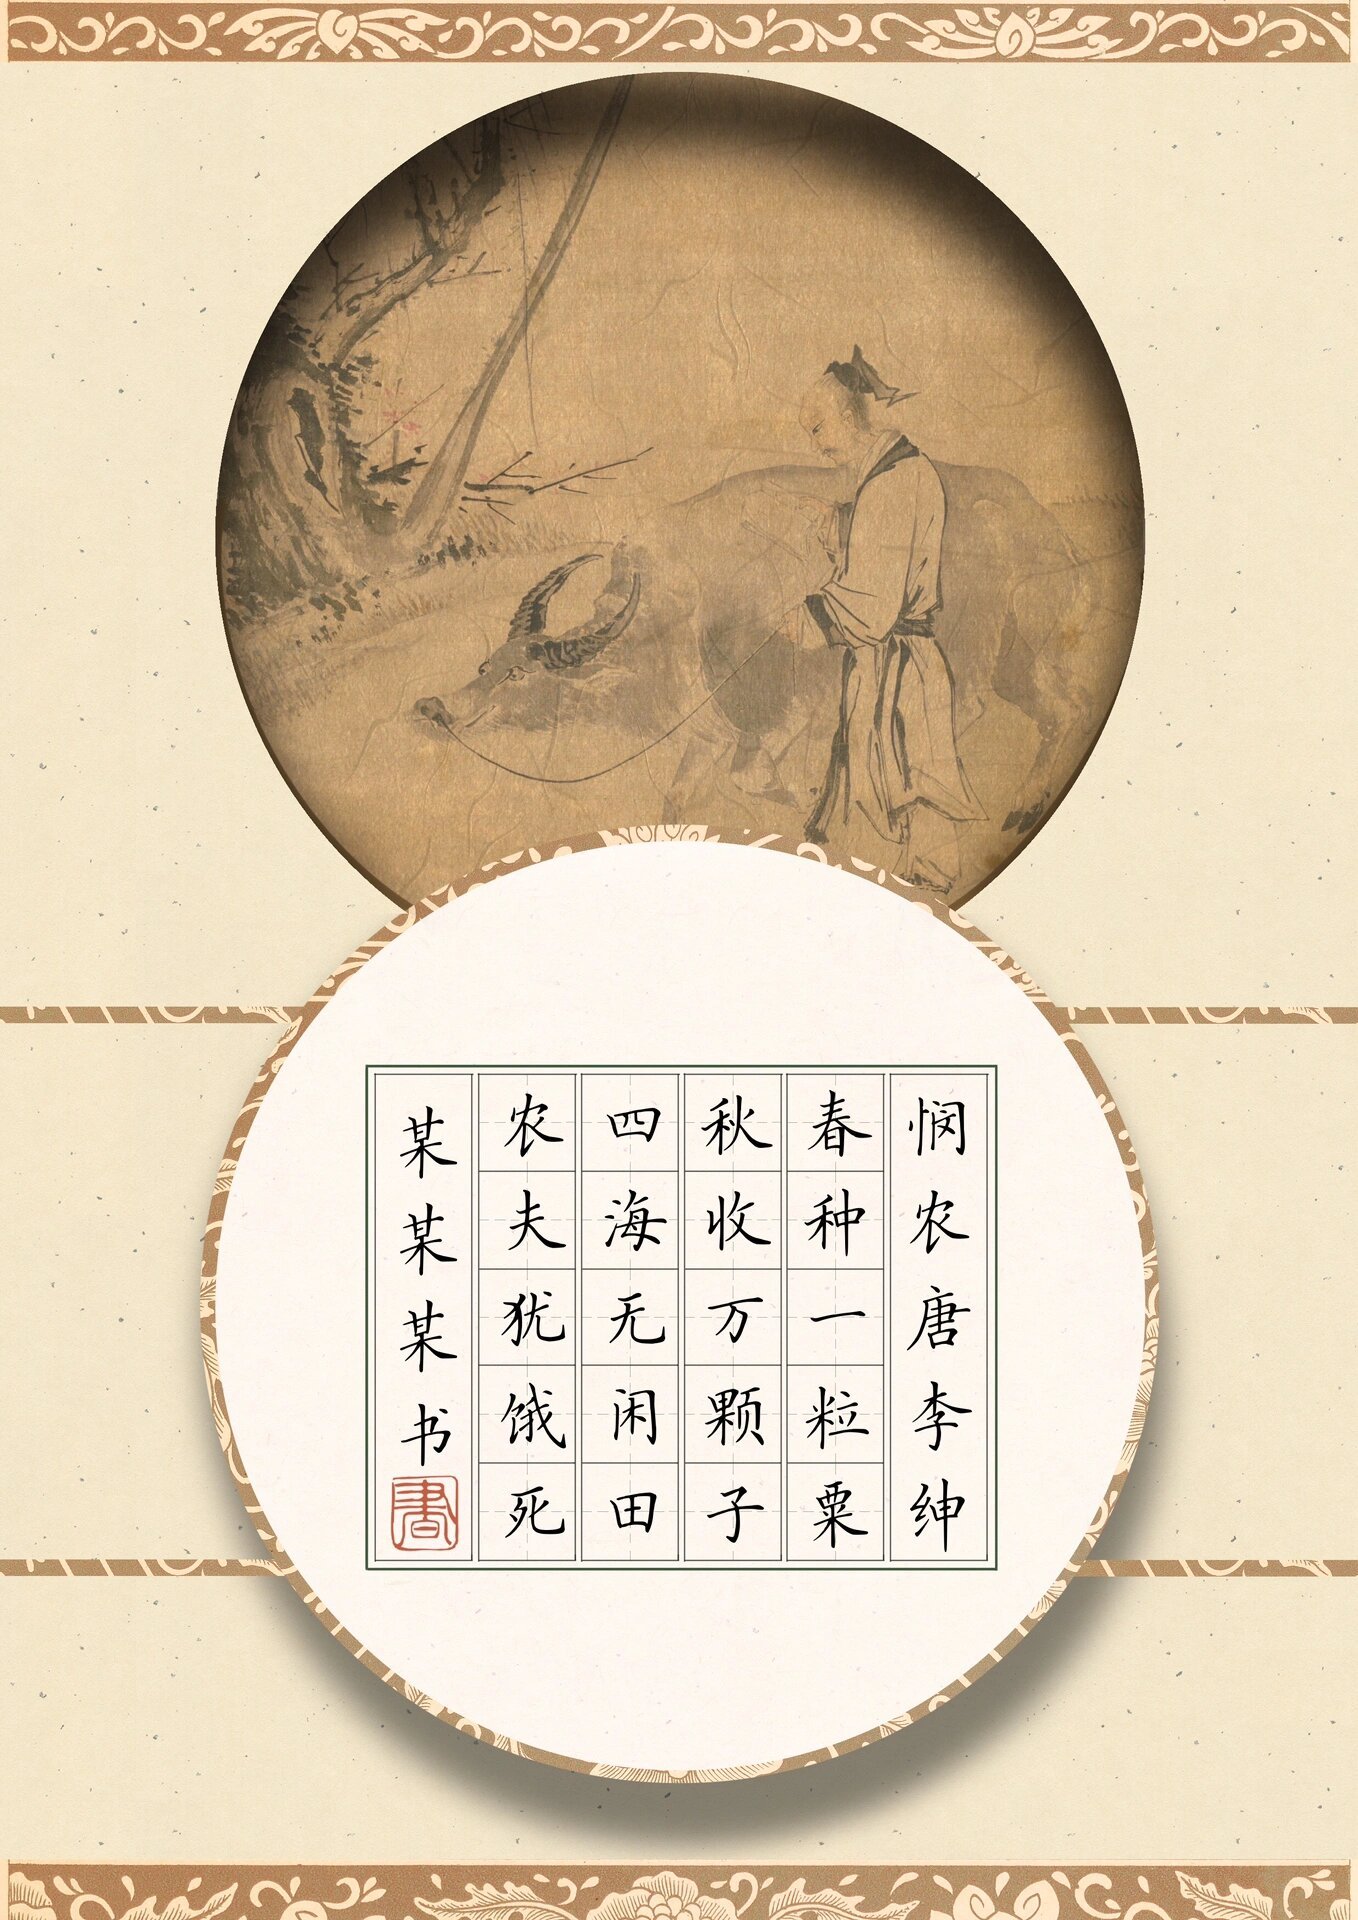 悯农唐李绅
春种一粒粟
秋收万颗子
四海无闲田
农夫犹饿死
某某某书
書